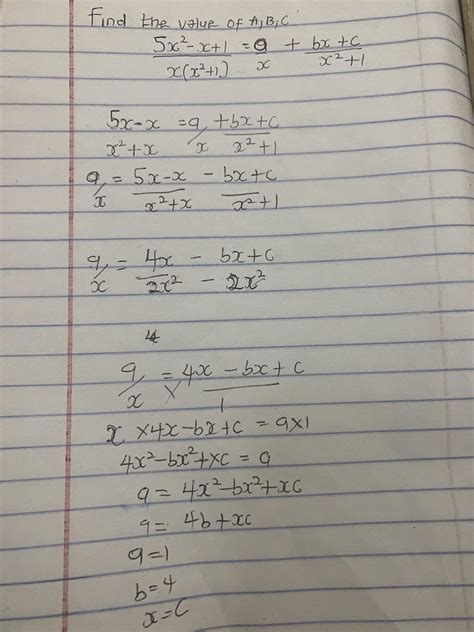 Find the value of A,B,C
5x²-x+1 / x(x²+1) = a / x + bx+c / x²+1
5x-x / x²+x = a / x + bx+c / x²+1
a / x = 5x-x / x²+x - bx+c / x²+1
a / x = 4x / 2x² - bx+c / 2x²
4
a / x × = 4x - bx + c / 1
x × 4x - bx + c = a×1
4x² - bx² + xc = a
a = 4x² - bx² + xc
a = 4b + xc
a = 1
b = 4
x = c